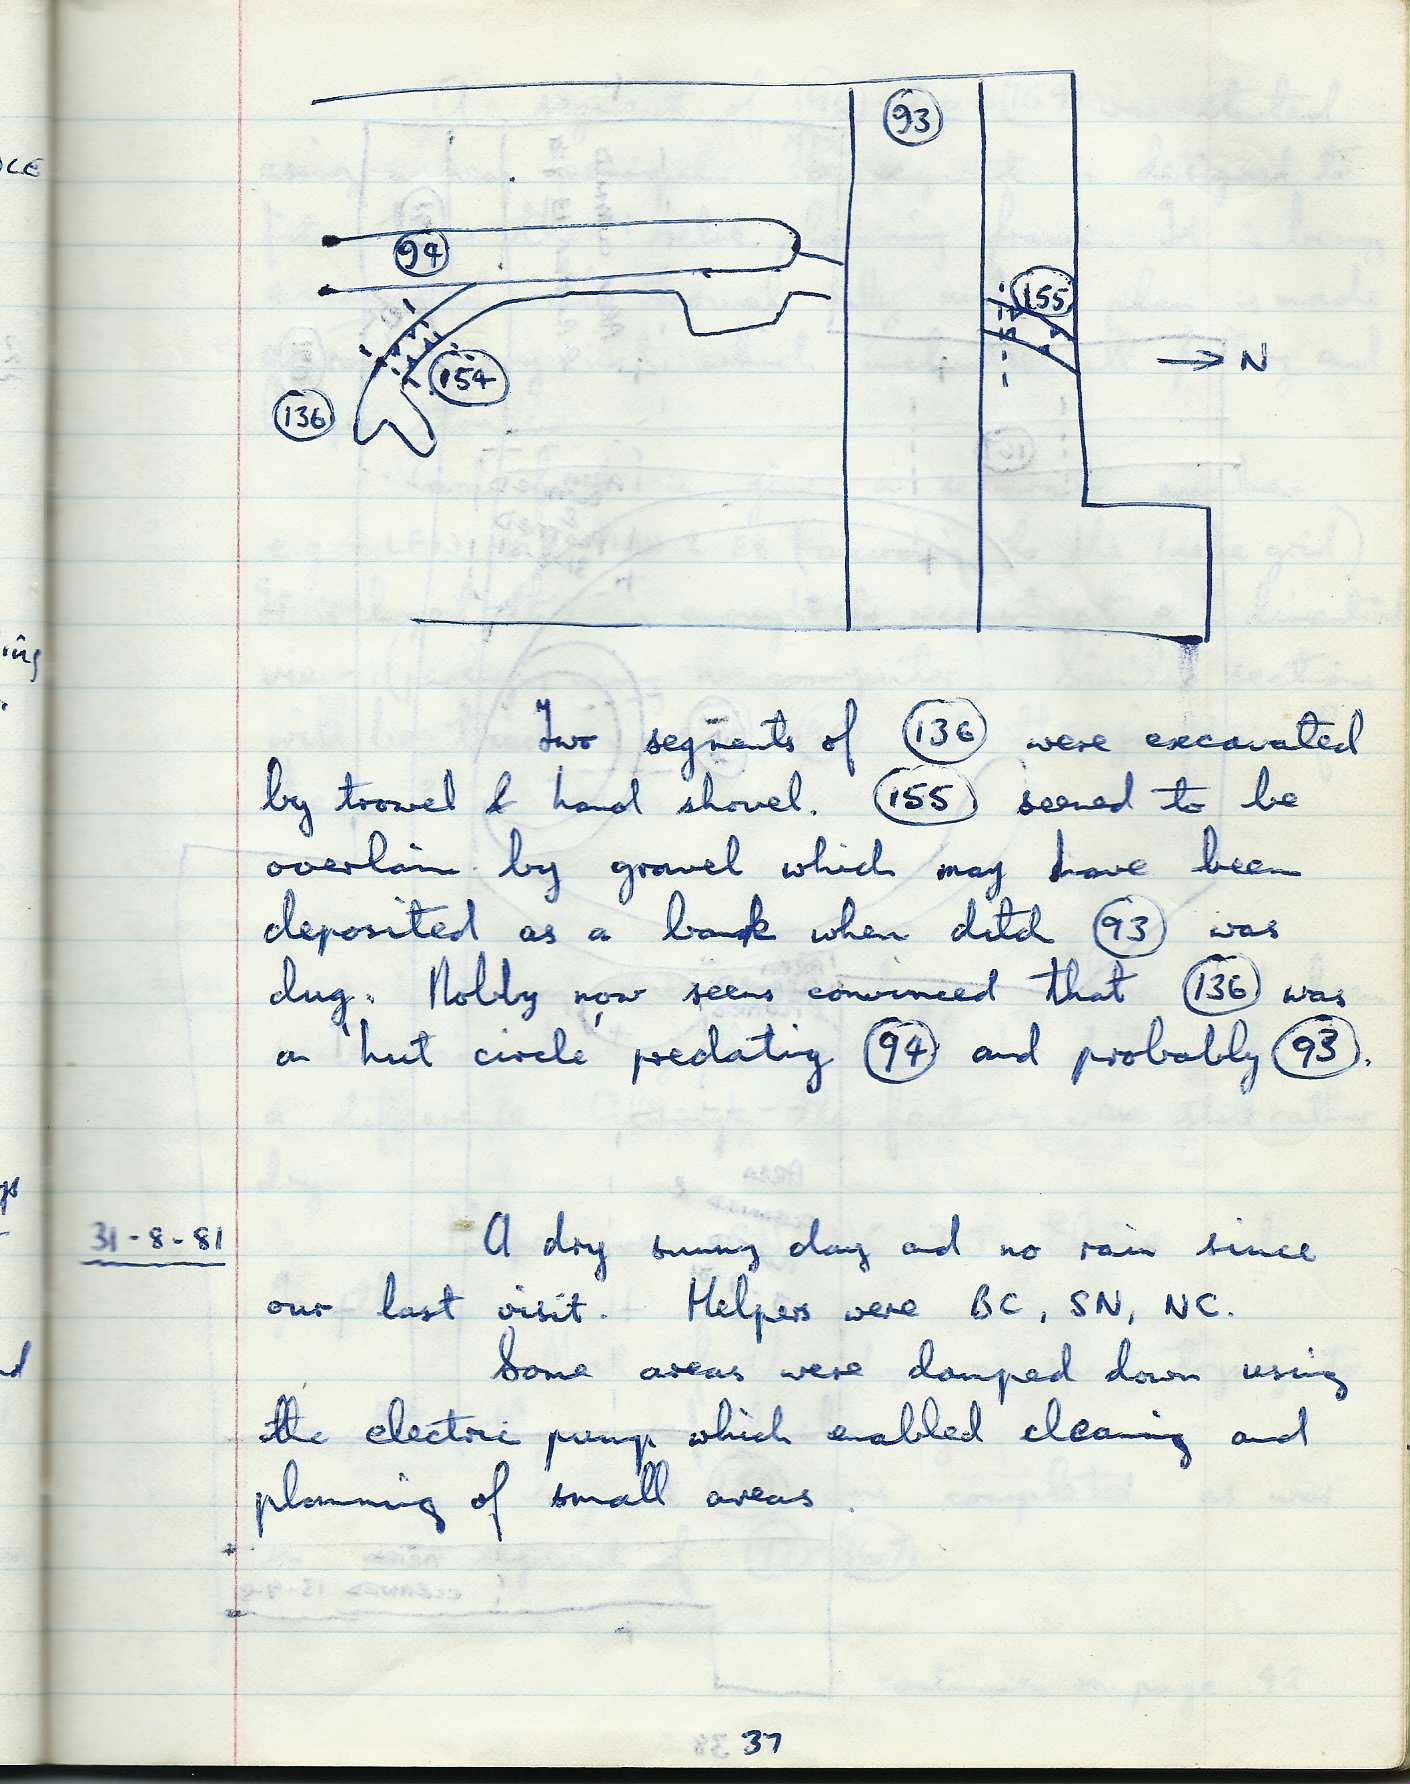 OLE
93
94
155
N
154
136
ing
Two segments of 136 were excavated
by trowel & hand shovel. 155 seemed to be
overlain by gravel which may have been
deposited as a bank when ditch 93 was
dug. Nobby now seems convinced that 136 was
a 'hut circle' predating 94 and probably 93.
31-8-81 A dry sunny day and no rain since
our last visit. Helpers were BC, SN, NC.
Some areas were damped down using
the electric pump which enabled cleaning and
planning of small areas.
37